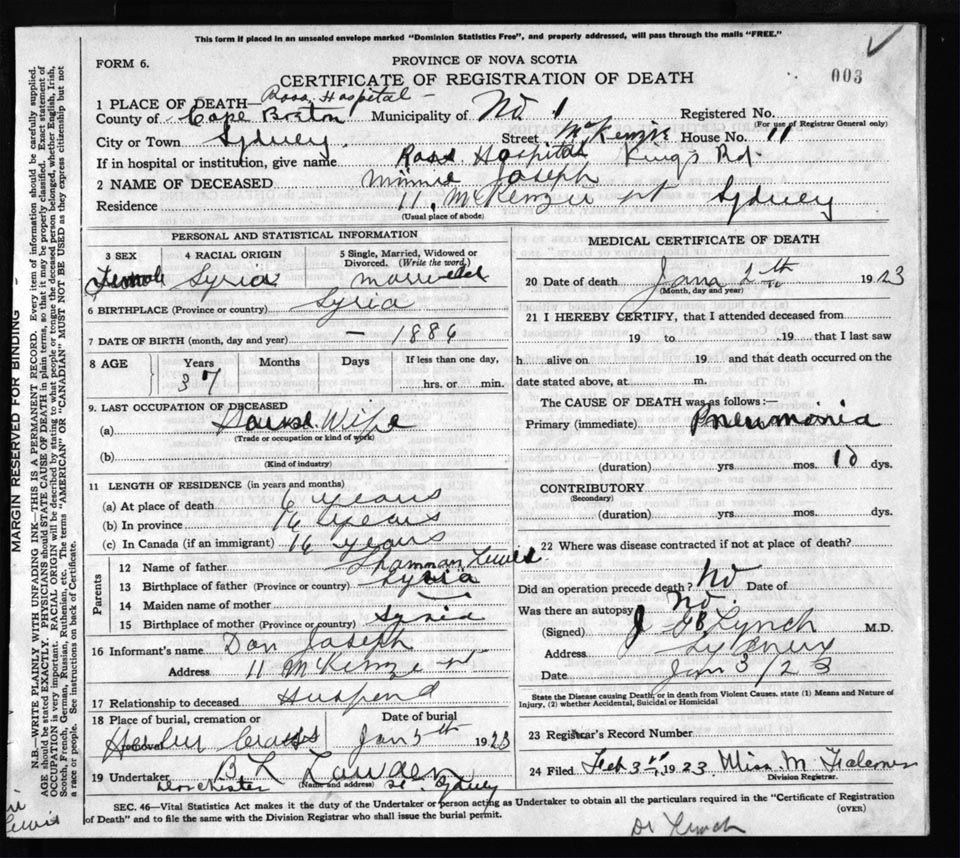 This form if placed in an unsealed envelope marked "Dominion Statistics Free", and properly addressed, will pass through the mails "FREE."
FORM 6.
PROVINCE OF NOVA SCOTIA
003
CERTIFICATE OF REGISTRATION OF DEATH
1 PLACE OF DEATH— Ross Hospital —
County of Cape Breton Municipality of No 1 Registered No.
(For use of Registrar General only)
City or Town Sydney. Street McKenzie House No. 11
If in hospital or institution, give name Ross Hospital King's Rd.
2 NAME OF DECEASED Minnie Joseph
Residence 11, McKenzie st Sydney
(Usual place of abode)
PERSONAL AND STATISTICAL INFORMATION
3 SEX 4 RACIAL ORIGIN 5 Single, Married, Widowed or Divorced. (Write the word.)
Female Syria married
6 BIRTHPLACE (Province or country) Syria
7 DATE OF BIRTH (month, day and year) — 1886
8 AGE Years Months Days If less than one day,
37 hrs. or min.
9. LAST OCCUPATION OF DECEASED
(a) House Wife
(Trade or occupation or kind of work)
(b)
(Kind of industry)
11 LENGTH OF RESIDENCE (in years and months)
(a) At place of death 6 years
(b) In province 16 years
(c) In Canada (if an immigrant) 16 years
Parents
12 Name of father Lewis
13 Birthplace of father (Province or country) Syria
14 Maiden name of mother —
15 Birthplace of mother (Province or country) Syria
16 Informant's name Dan Joseph
Address 11 McKenzie st
17 Relationship to deceased Huspend
18 Place of burial, cremation or removal Date of burial
Cross Jan 5th 1923
19 Undertaker B L
(Name and address)
Dorchester st. Sydney
MEDICAL CERTIFICATE OF DEATH
20 Date of death Jana 2th 1923
(Month, day and year)
21 I HEREBY CERTIFY, that I attended deceased from
19 to .19 that I last saw
h alive on 19 and that death occurred on the
date stated above, at m.
The CAUSE OF DEATH was as follows:—
Primary (immediate) Pneumonia
(duration) yrs mos. 10 dys.
CONTRIBUTORY
(Secondary)
(duration) yrs. mos. dys.
22 Where was disease contracted if not at place of death?
Did an operation precede death? No Date of
Was there an autopsy No.
(Signed) J Lynch M.D.
Address Sydney
Date Jan 3/23
State the Disease causing Death, or in death from Violent Causes, state (1) Means and Nature of Injury, (2) whether Accidental, Suicidal or Homicidal
23 Registrar's Record Number
24 Filed Feb 3rd, 1923 Miss M.
Division Registrar.
SEC. 46—Vital Statistics Act makes it the duty of the Undertaker or person acting as Undertaker to obtain all the particulars required in the "Certificate of Registration
of Death" and to file the same with the Division Registrar who shall issue the burial permit.
(OVER)
Dr Lynch
MARGIN RESERVED FOR BINDING
N.B.—WRITE PLAINLY WITH UNFADING INK—THIS IS A PERMANENT RECORD. Every item of information should be carefully supplied.
AGE should be stated EXACTLY. PHYSICIANS should STATE CAUSE OF DEATH in plain terms, so that it may be properly classified. Exact statement of
OCCUPATION is very important. RACIAL ORIGIN will be described by stating to what people or tongue the deceased person belonged, whether English, Irish,
Scotch, French, German, Russian, Ruthenian, etc. The terms "AMERICAN" OR "CANADIAN" MUST NOT BE USED as they express citizenship but not
a race or people. See instructions on back of Certificate.
Lewis